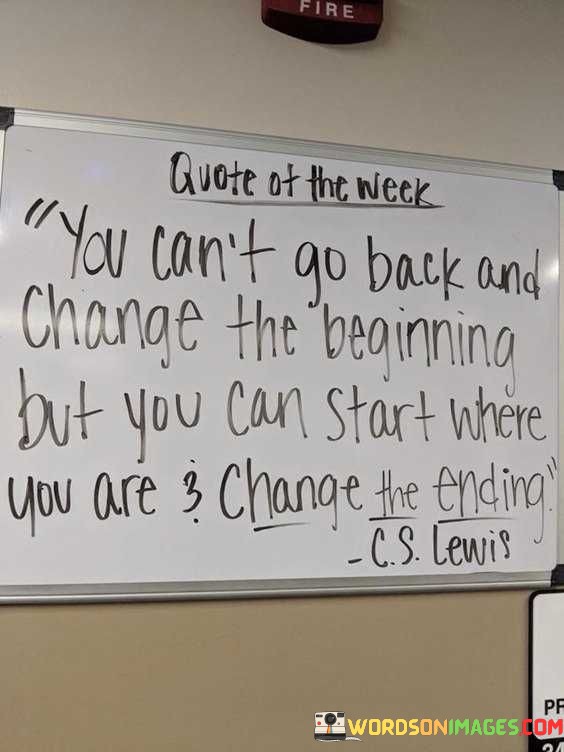 FIRE
Quote of the Week
"You can't go back and
change the beginning
but you can start where
you are & change the ending."
-C.S. Lewis
PR
WORDSONIMAGES.COM